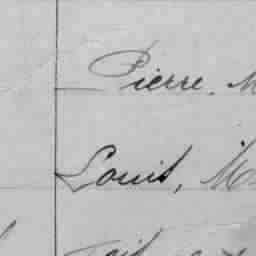 Pierre, M
Louis, M